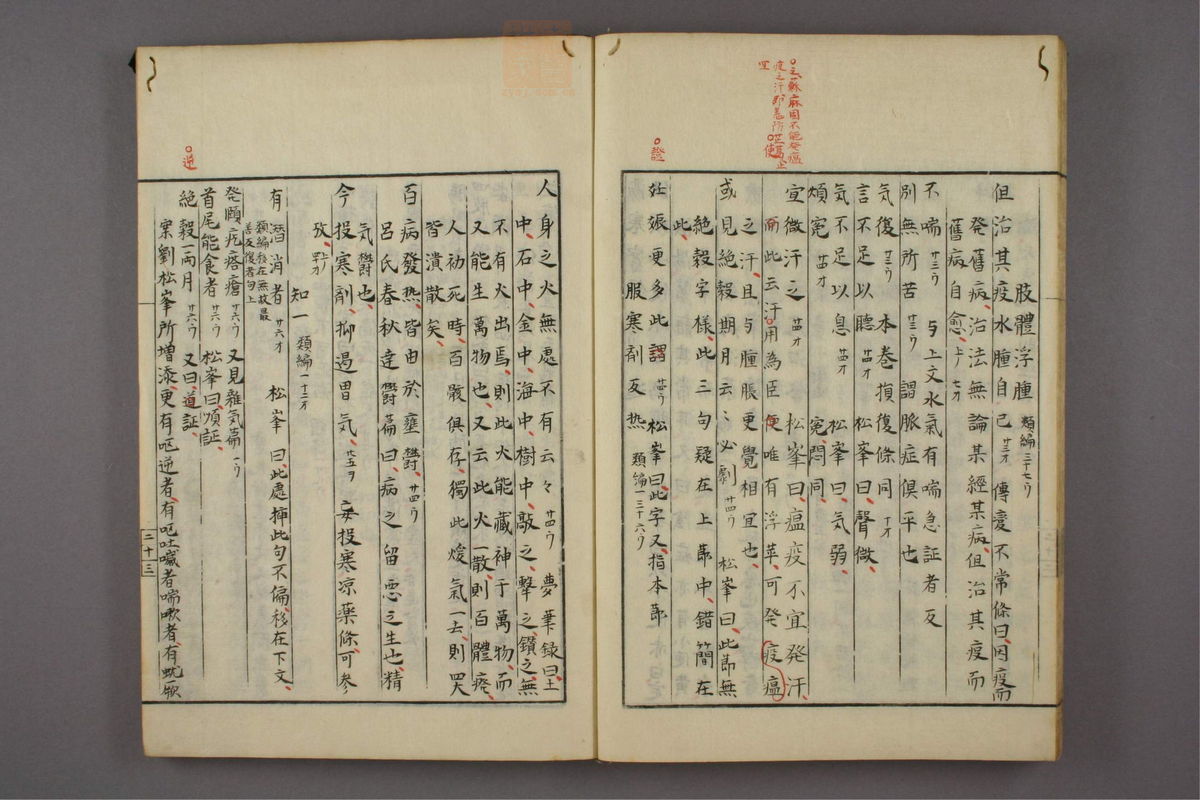 肢體浮腫 類編三十七ウ
但治其疫水腫自已 廿三オ 傳變不常條曰因疫而
発舊病治法無論某經某病但治其疫而
舊病自愈 上ノ七オ
不喘 廿三ウ 与上文水氣有喘急証者反
別無所苦 廿三ウ 謂脈症俱平也
気復 廿三ウ 本巻損復條同 一オ
言不足以聽 廿四オ 松峯曰聲微
気不足以息 廿四オ 松峯曰気弱
煩寃 廿四オ 寃悶同
宜微汗之 廿四オ 松峯曰瘟疫不宜発汗
而此云汗用為臣使唯有浮萃可発疫瘟
之汗且与腫脹更覺相宜也
或見絶穀期月云〻必劇 廿四ウ 松峯曰此節無
絶穀字様此三句疑在上節中錯簡在
此
妊娠更多此謂 廿四ウ 松峯曰此字又指本節
服寒剤反热 類編一三十六ウ
○證
人身之火無處不有云々 廿四ウ 夢筆録曰土
中石中金中海中樹中敲之擊之鑽之無
不有火出焉則此火能藏神于萬物而
又能生萬物也又云此火一散則百體疼
人初死時百骸俱存獨此煖氣一去則四大
皆潰散矣
百病發热皆由於壅鬱 廿四ウ
呂氏春秋達鬱萹曰病之留悪之生也精
気鬱也
今投寒剤抑遏胃気 廿五ヲ 妄投寒凉薬條可参
攷 上ノ四オ
知一 類編一十三オ
有潛消者 廿六オ 松峯曰此處挿此句不偏移在下文
類編移在無故最
善反復者句上
発頤疙瘩瘡 廿六ウ 又見雜気萹 一ウ
首尾能食者 廿六ウ 松峯曰順証
絶穀一兩月 廿六ウ 又曰逆証
案劉松峯所増添更有呃逆者有呕吐噦者喘嗽者有蚘厥
二十三
○逆